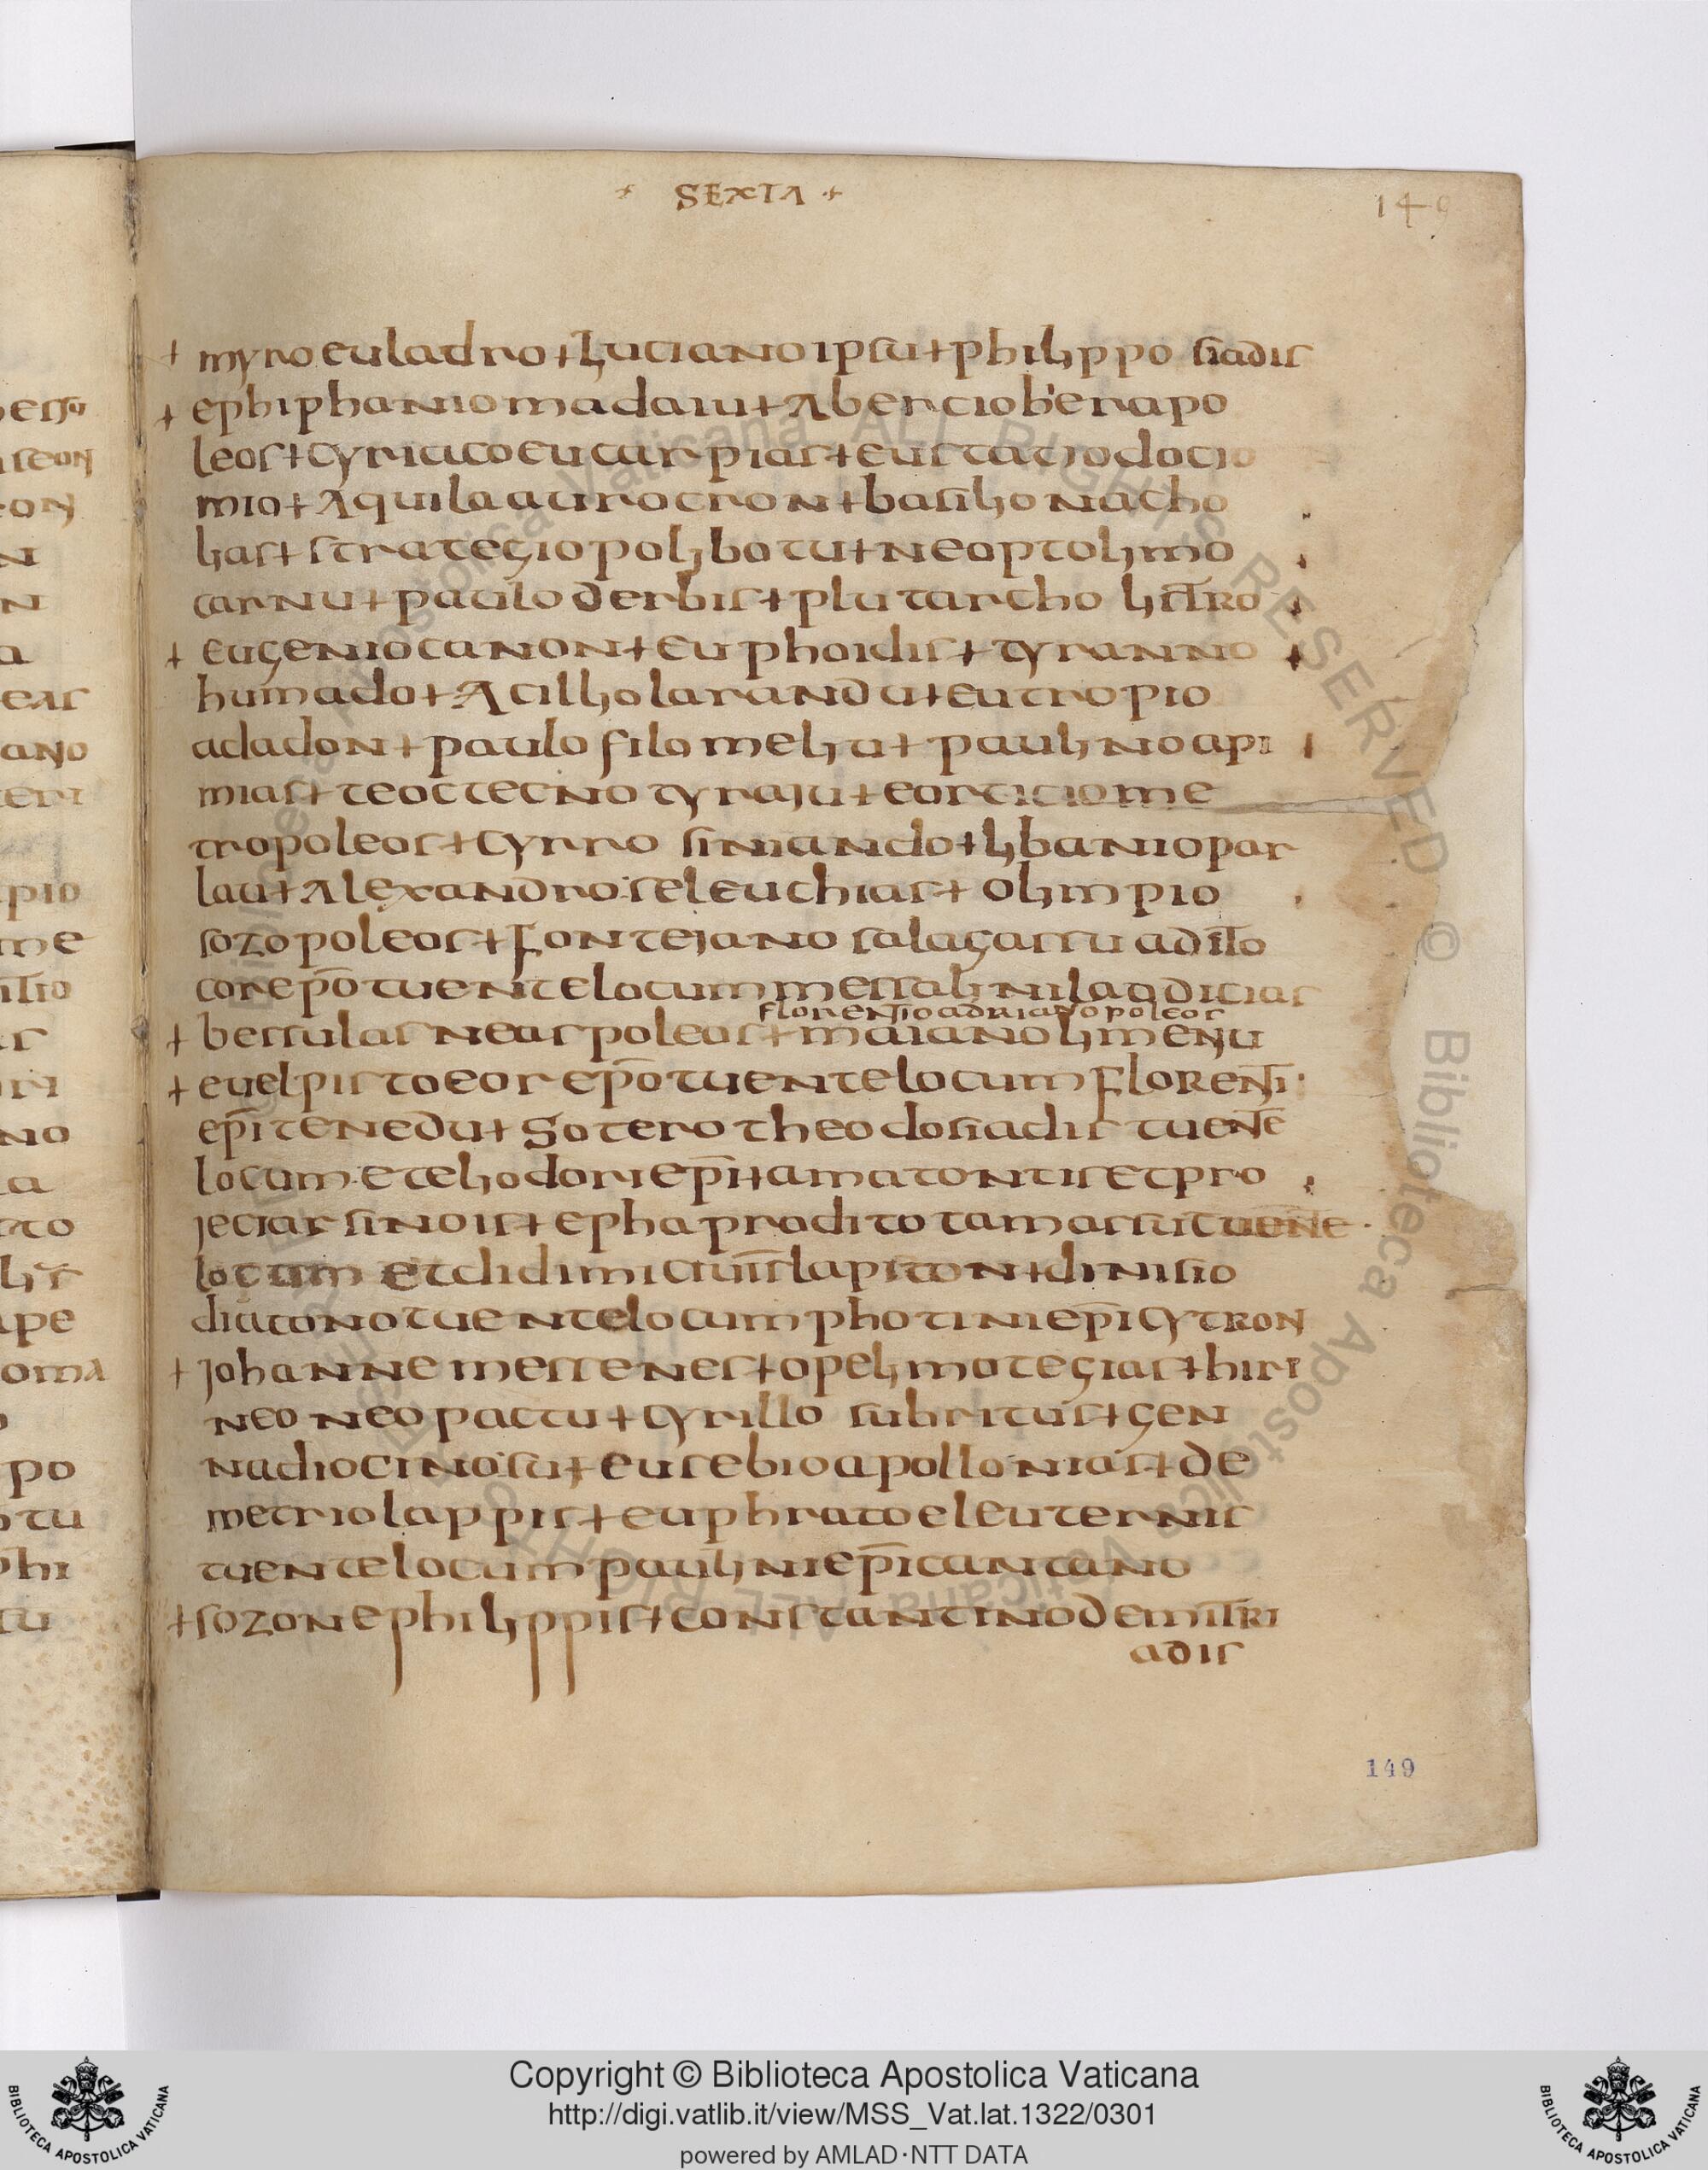 + SEXTA +
149
+ myro euladro + Luciano ipsu + philippo siadis
+ ephiphanio madaiu + Abercio hierapo
leos + cyriaco eucarpias + eustatio docio
mio + Aquila aurocron + basilio nacho
lias + strategio polibotu + neoptolimo
carnu + paulo derbis + plutarcho listro
+ eugenio canon + eu phoidis + tyranno +
humado + Acillio larandu + eutropio
adadon + paulo filomeliu + paulino api +
mias + teoctecno tyraju + eorticio me
tropoleos + cyrro siniando + libanio par
lau + Alexandro seleuchias + olimpio
sozopoleos + Fontejano salagassu adilo
corep̄o tuente locum messalini laodicias
florentio adrianopoleos
+ bessulas neas poleos + maiano limenu
+ euelpisto eorep̄o tuente locum florenti
ep̄i tenedu + Sotero theodosiadis tuente
locum et eliodori ep̄i + amatontis et pro
jecias sinois + ephaprodito tamassu tuente
locum et didimi civit̄ lapiton + dinisio
diacono tuente locum photini ep̄i cytron
+ johanne messenes + opelimo tegias + hiri
neo neo pactu + cyrillo subritus + gen
nadio cinosu + eusebio apollonias + de
metrio lappis + euphrato eleuternis
tuente locum paulini ep̄i cantano
+ sozone philippis + constantino demitri
adis
149
Copyright © Biblioteca Apostolica Vaticana
http://digi.vatlib.it/view/MSS_Vat.lat.1322/0301
powered by AMLAD·NTT DATA
BIBLIOTECA APOSTOLICA VATICANA
BIBLIOTECA APOSTOLICA VATICANA